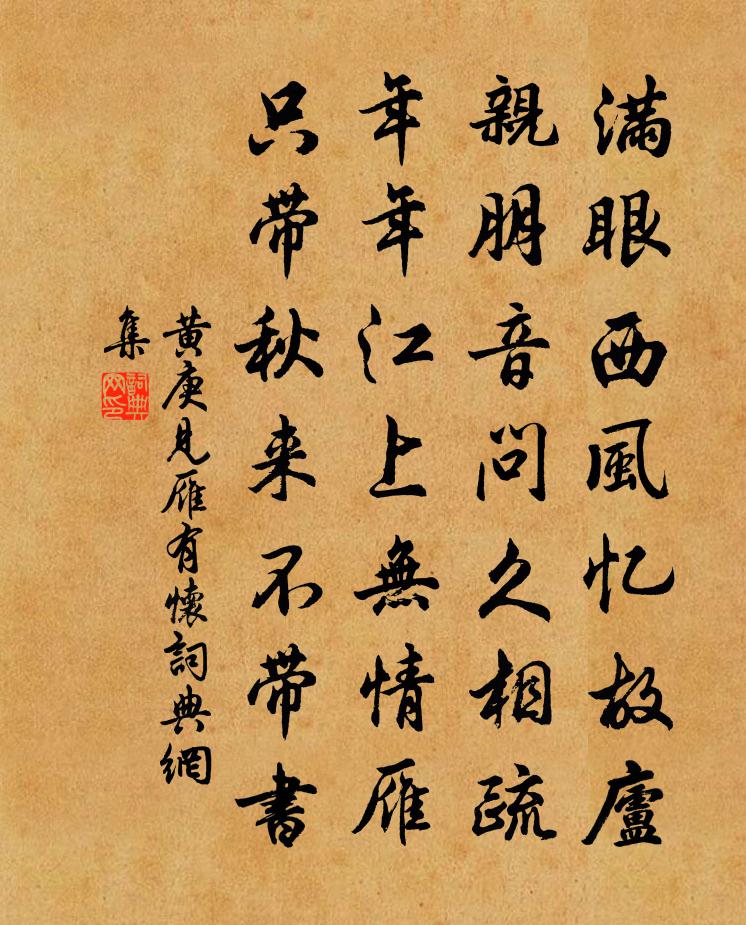 满眼西風忆故廬
親朋音问久相疏
年年江上無情雁
只带秋来不带書
黄庚见雁有懷詞典網
集
詞典网印